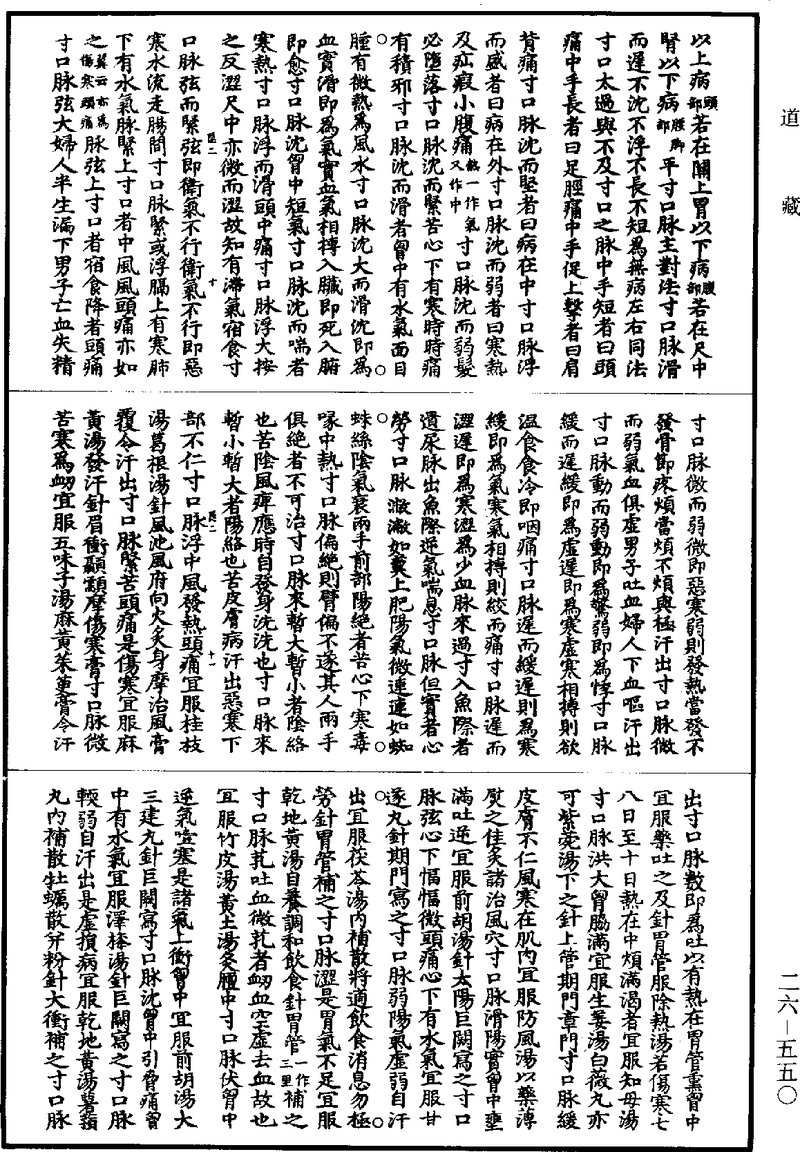 道藏
以上病頭部若在關上胃以下病腹部若在尺中
腎以下病脛腳部平寸口脉主對法寸口脉滑
而遲不沈不浮不長不短為無病左右同法
寸口太過與不及寸口之脉中手短者曰頭
痛中手長者曰足脛痛中手促上擊者曰肩
背痛寸口脉沈而堅者曰病在中寸口脉浮
而盛者曰病在外寸口脉沈而弱者曰寒熱
及疝瘕小腹痛熱一作氣又作中寸口脉沈而弱髮
必墮落寸口脉沈而緊苦心下有寒時時痛
有積邪寸口脉沈而滑者胷中有水氣面目
腫有微熱為風水寸口脉沈大而滑沈即為
血實滑即為氣實血氣相摶入臟即死入腑
即愈寸口脉沈胷中短氣寸口脉沈而喘者
寒熱寸口脉浮而滑頭中痛寸口脉浮大按
之反澀尺中亦微而澀故知有滯氣宿食寸
口脉弦而緊弦即衛氣不行衛氣不行即惡
寒水流走腸間寸口脉緊或浮膈上有寒肺
下有水氣脉緊上寸口者中風風頭痛亦如
之巢云亦為傷寒頭痛脉弦上寸口者宿食降者頭痛
寸口脉弦大婦人半生漏下男子亡血失精
寸口脉微而弱微即惡寒弱則發熱當發不
發骨節疼煩當煩不煩與極汗出寸口脉微
而弱氣血俱虛男子吐血婦人下血嘔汗出
寸口脉動而弱動即為驚弱即為悸寸口脉
緩而遲緩即為虛遲即為寒虛寒相摶則欲
溫食食冷即咽痛寸口脉遲而緩遲則為寒
緩即為氣寒氣相摶則絞而痛寸口脉遲而
澀遲即為寒澀為少血脉來過寸入魚際者
遺尿脉出魚際逆氣喘息寸口脉但實者心
勞寸口脉潎潎如羹上肥陽氣微連連如蜘
蛛絲陰氣衰兩手前部陽絕者苦心下寒毒
喙中熱寸口脉偏絕則臂偏不遂其人兩手
俱絕者不可治寸口脉來暫大暫小者陰絡
也苦陰風痺應時自發身洗洗也寸口脉來
暫小暫大者陽絡也苦皮膚病汗出惡寒下
部不仁寸口脉浮中風發熱頭痛宜服桂枝
湯葛根湯針風池風府向火灸身摩治風膏
覆令汗出寸口脉緊苦頭痛是傷寒宜服麻
黃湯發汗針眉衝顳顬摩傷寒膏寸口脉微
苦寒為衂宜服五味子湯麻黃茱萸膏令汗
出寸口脉數即為吐以有熱在胃管熏胷中
宜服藥吐之及針胃管服除熱湯若傷寒七
八日至十日熱在中煩滿渴者宜服知母湯
寸口脉洪大胷脇滿宜服生薑湯白薇丸亦
可紫菀湯下之針上管期門章門寸口脉緩
皮膚不仁風寒在肌肉宜服防風湯以藥薄
熨之佳灸諸治風穴寸口脉滑陽實胷中壅
滿吐逆宜服前胡湯針太陽巨闕寫之寸口
脉弦心下愊愊微頭痛心下有水氣宜服甘
遂丸針期門寫之寸口脉弱陽氣虛弱自汗
出宜服茯苓湯內補散將適飲食消息勿極
勞針胃管補之寸口脉澀是胃氣不足宜服
乾地黃湯自養調和飲食針胃管一作三里補之
寸口脉芤吐血微芤者衂血空虛去血故也
宜服竹皮湯黃土湯灸膻中寸口脉伏胷中
逆氣噎塞是諸氣上衝胷中宜服前胡湯大
三建丸針巨闕寫寸口脉沈胷中引脅痛胷
中有水氣宜服澤漆湯針巨闕寫之寸口脉
輭弱自汗出是虛損病宜服乾地黃湯薯蕷
丸內補散牡蠣散并粉針大衝補之寸口脉
二六—五五〇